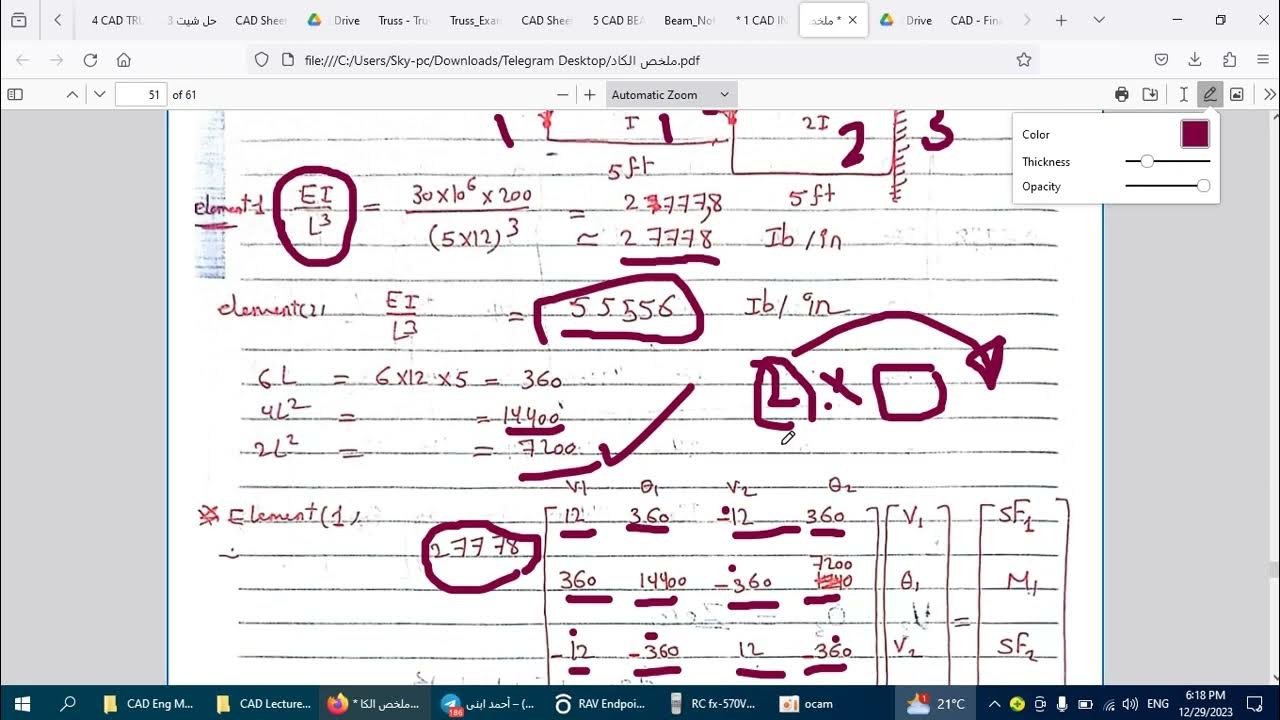 4 CAD TRU
حل شيت 3
CAD Sheet
Drive
Truss - Trus
Truss_Exam
CAD Sheet
5 CAD BEA
Beam_Not
* 1 CAD IN
ملخص *
Drive
CAD - Fina
file:///C:/Users/Sky-pc/Downloads/Telegram Desktop/ملخص الكاد.pdf
51 of 61
Automatic Zoom
Color
Thickness
Opacity
1 I 1 2I 2 3
5ft
5ft
element 1 EI/L³ = 30×10⁶×200/(5×12)³ = 27777,8
≈ 27778 Ib/in
element(2) EI/L³ = 55556 Ib/in
6L = 6×12×5 = 360
4L² = = 14400
2L² = = 7200
2 ×
V1 θ1 V2 θ2
Element(1)
12 360 -12 360 V1 SF1
27778
7200
360 14400 -360 θ1 M1
=
-12 -360 12 -360 V2 SF2
CAD Eng M...
CAD Lecture...
* ملخص الكا...
186
أحمد ابنى – (...
RAV Endpoi...
RC fx-570V...
ocam
1
21°C
ENG
6:18 PM
12/29/2023